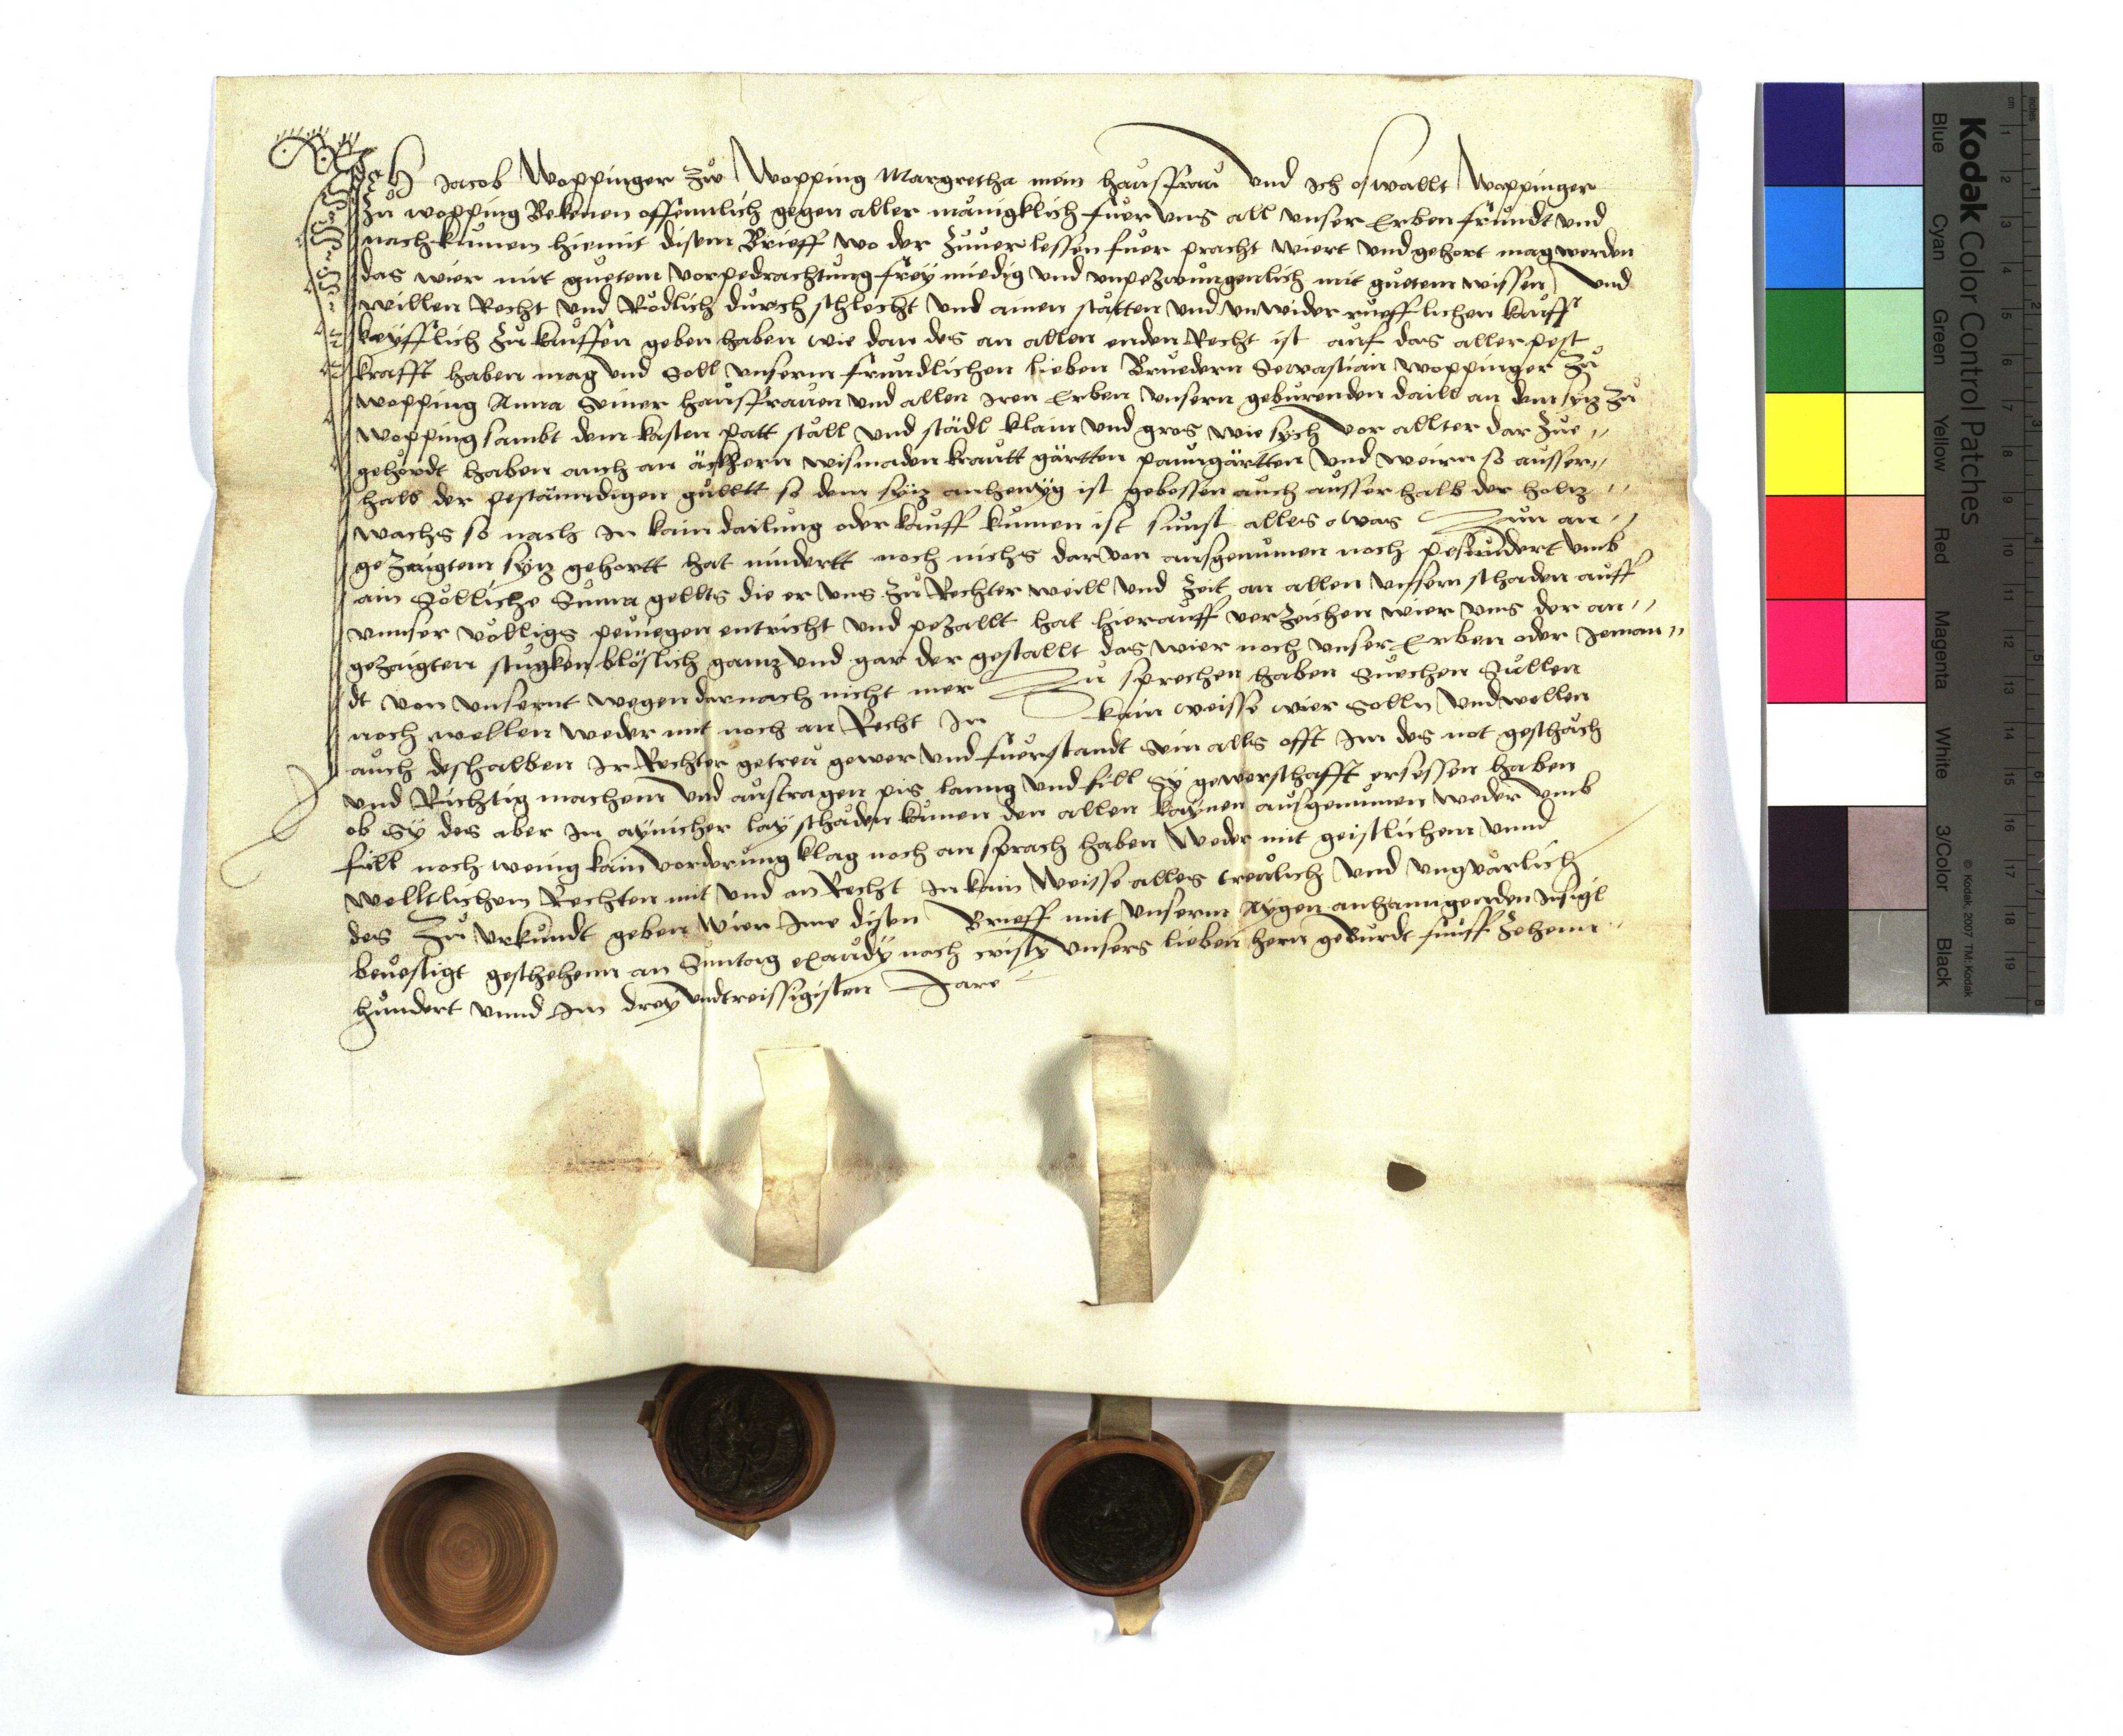 Ich Jacob Woppinger zů Wopping Margretha mein haůsfraů Vnd Ich oswallt Woppinger
zů wopping Bekenen offennlich gegen aller mänigklich fuer vns all vnser Erben frůndt vnd
nach kůmen hiemit disem Brieff wo der zůuerlessen fuer pracht wiert vnd gehort mag werden
das wier mit gůetem vorpedrachtůng freÿ miedig vnd vnpezwůngenlich mit gůetem wissen vnd
willen Recht vnd Rödlich důrch schlecht vnd ainen stätten vnd vnwider ruefflichen kaůff
keÿfflich zů kaůffen geben haben wie dan des an allen enden Recht ist aůf das aller pest
krafft haben mag vnd soll vnserm frůndlichen lieben Brůedern Sewastian woppinger zů
wopping Anna Seiner haůsfraůen vnd allen Iren Erben vnsern gebůrenden daill an dem sÿz zů
Wopping sambt dem kasten patt ställ vnd städl klain vnd gros wie sych vor allter dar zůe
gehördt haben auch an äckhern wismaden kraůtt gärtten paůmgärtten vnd weirn so aůsser
halb der pestänndigen gůlltt so dem sÿz anhengig ist gebessen aůch aůsser halb der holz
wachs so nach In kain dailůng oder kaůff kůmen ist sůnst alles was Zům an
gezaigtem sÿz gehortt hat nindertt noch nichs daruon aůsgenůmen noch pesůndert vmb
ain Sölliche Sůma gellts die er vns zů Rechter weill vnd Zeit an allen vnsern schaden aůff
vnnser völligs peniegen entricht vnd pezallt hat hieraůff verzeichen wier vns der an
gezaigten stůgken blöslich ganz vnd gar der gestallt das wier noch vnser Erben oder Jeman
dt von vnsernt wegen darnach nicht mer Zů sprechen haben Sůechen Sůllen
noch wellen weder mit noch an Recht In kain weisse wier Solln vnd wellen
aůch deshalben Ir Rechter getreů gewer vnd fůerstandt sein alls offt Im des not geschäch
vnd Richtig machenn vnd aůstragen pis lanng vnd fill Sÿ gewerschafft ersessen haben
ob Sÿ des aber In aÿnicher laÿ schäden kämen den allen kaÿnen aůsgenůmen weder vmb
fill noch wenig kain vorderůng klag noch an sprach haben Weder mit geistlichem vnnd
welltlichem Rechten mit vnd an Recht In kain Weisse alles treůlich vnd vngvärlich
des Zů vrkůndt geben Wier Ime disen Brieff mit vnserm Aÿgen anhanngenden Insigl
beuestigt geschehenn an Sůntag exaůdÿ nach cristÿ vnsers lieben hern gebůrdt fůnff zehenn
hůndert vnnd Im dreÿ vndtreissigisten Jare
Kodak Color Control Patches
Blue Cyan Green Yellow Red Magenta White 3/Color Black
© Kodak, 2007 TM: Kodak
Inches 1 2 3 4 5 6 7 8
cm 1 2 3 4 5 6 7 8 9 10 11 12 13 14 15 16 17 18 19